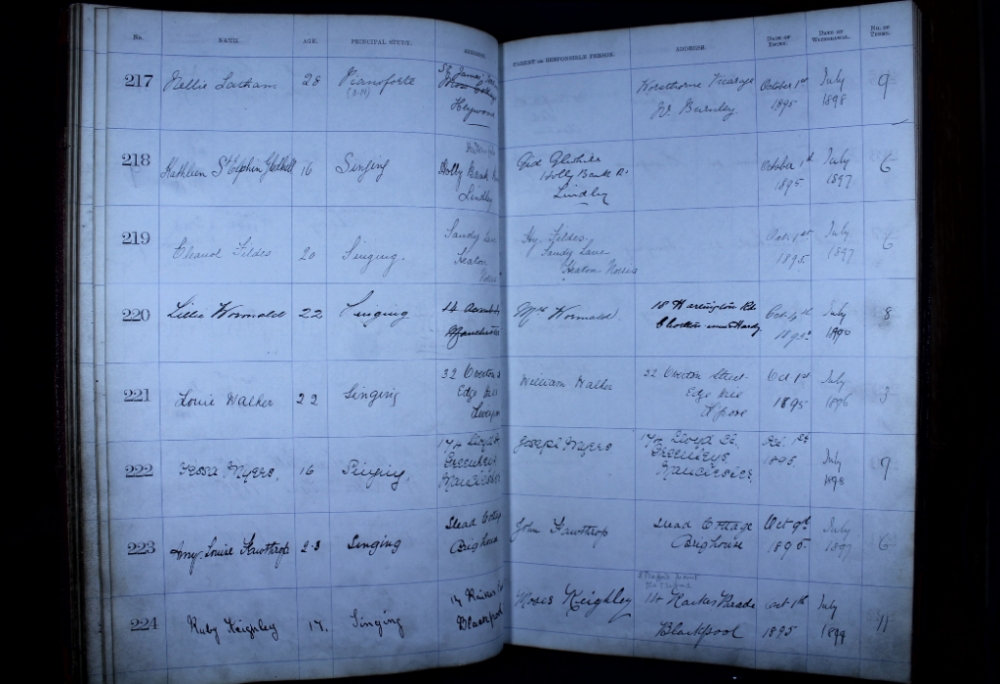 No. NAME. AGE. PRINCIPAL STUDY. ADDRESS. PARENT OR RESPONSIBLE PERSON. ADDRESS. DATE OF ENTRY. DATE OF WITHDRAWAL. No. OF TERMS.
217 Nellie Latham 28 Pianoforte Heywood Vicarage W. Burnley October 1st 1895 July 1898 9
218 Kathleen St Ephen 16 Singing Holly Bank Lindley Holly Bank Rd Lindley October 1st 1895 July 1897 6
219 Eleanor Fildes 20 Singing. Sandy Lane Heaton Norris Hy. Fildes Sandy Lane Heaton Norris Oct. 1st 1895 July 1897 6
220 Lillie Wormald 22 Singing 14 Manchester Mrs Wormald 18 Harrington Rd Chorlton cum Hardy Oct 1895 July 8
221 Louie Walker 22 Singing 32 Edge Hill William Walker 32 Street Edge Hill L'pool Oct 1st 1895 July 1896 3
222 Myers. 16 Singing. 174 Lloyd St Greenheys Manchester Joseph Myers 174 Lloyd St. Greenheys Manchester Oct 1st 1895 July 1898 9
223 Amy Louise Fawthrop 23 Singing Slead Cottage Brighouse John Fawthrop Slead Cottage Brighouse Oct 9th 1895 July 1897 6
224 Ruby Keighley 17. Singing Blackpool Moses Keighley Parade Blackpool Oct 1st 1895 July 1899 11